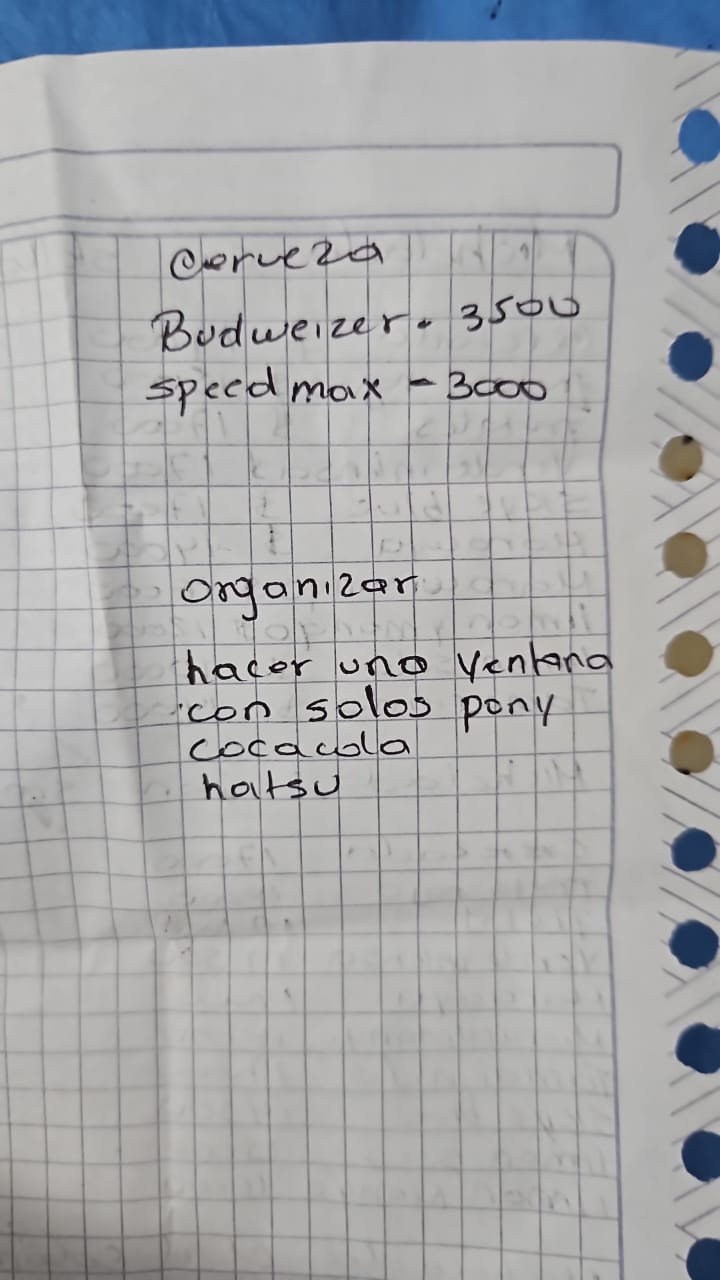 Cerveza
Budweizer. 3500
speed max - 3000
organizar
hacer una ventana
con solos pony
cocacola
hatsu